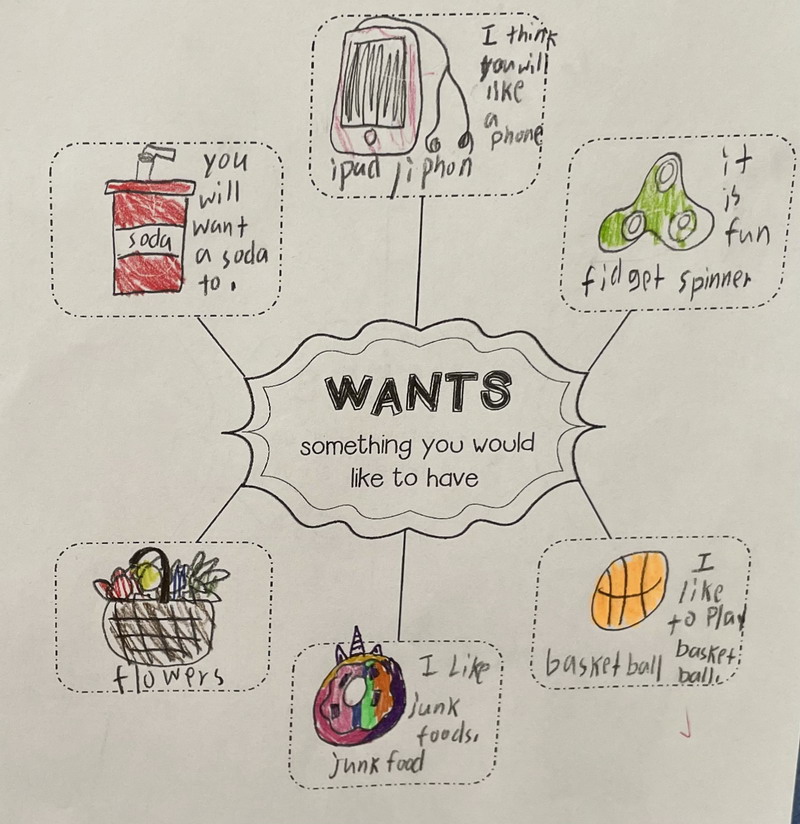 I think
you will
like
a
phone
ipad / iphon
you
will
want
a soda
to.
soda
it
is
fun
fidget spinner
WANTS
something you would
like to have
flowers
I Like
junk
foods.
junk food
I
like
to Play
basket
ball.
basketball